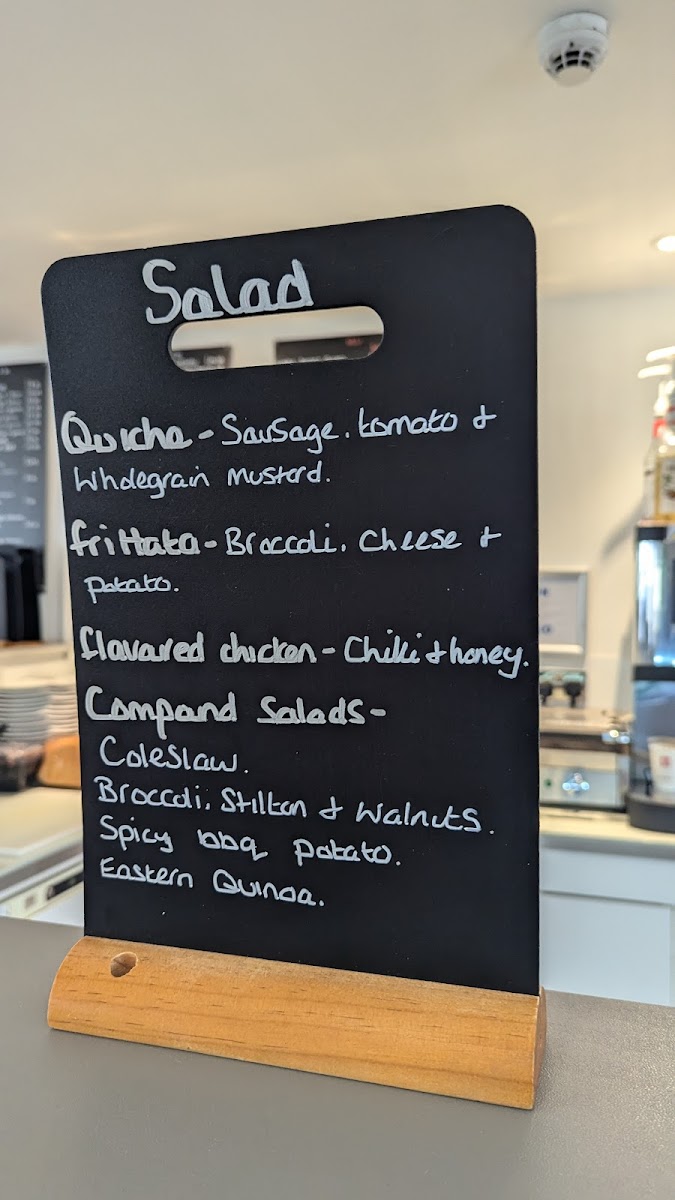 Salad
Quiche - Sausage. tomato &
Wholegrain Mustard.
frittata - Broccoli. Cheese &
potato.
flavoured chicken - Chilli & honey.
Compound Salads -
Coleslaw.
Broccoli, Stilton & Walnuts.
Spicy bbq potato.
Eastern Quinoa.